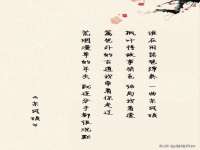 谁在用琵琶弹奏 一曲东风破
枫叶将故事染色 结局我看透
篱笆外的古道我牵着你走过
荒烟漫草的年头 就连分手都很沉默
《东风破》